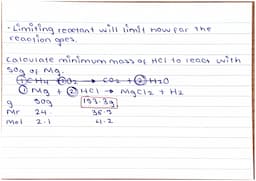 • Limiting reactant will limit how far the
reaction goes.
Calculate minimum mass of HCl to react with
50g of Mg.
① CH4 ②O2 → CO2 + ② H2O
① Mg + ② HCl → MgCl2 + H2
g 50g 153.3g
Mr 24 36.5
mol 2.1 4.2